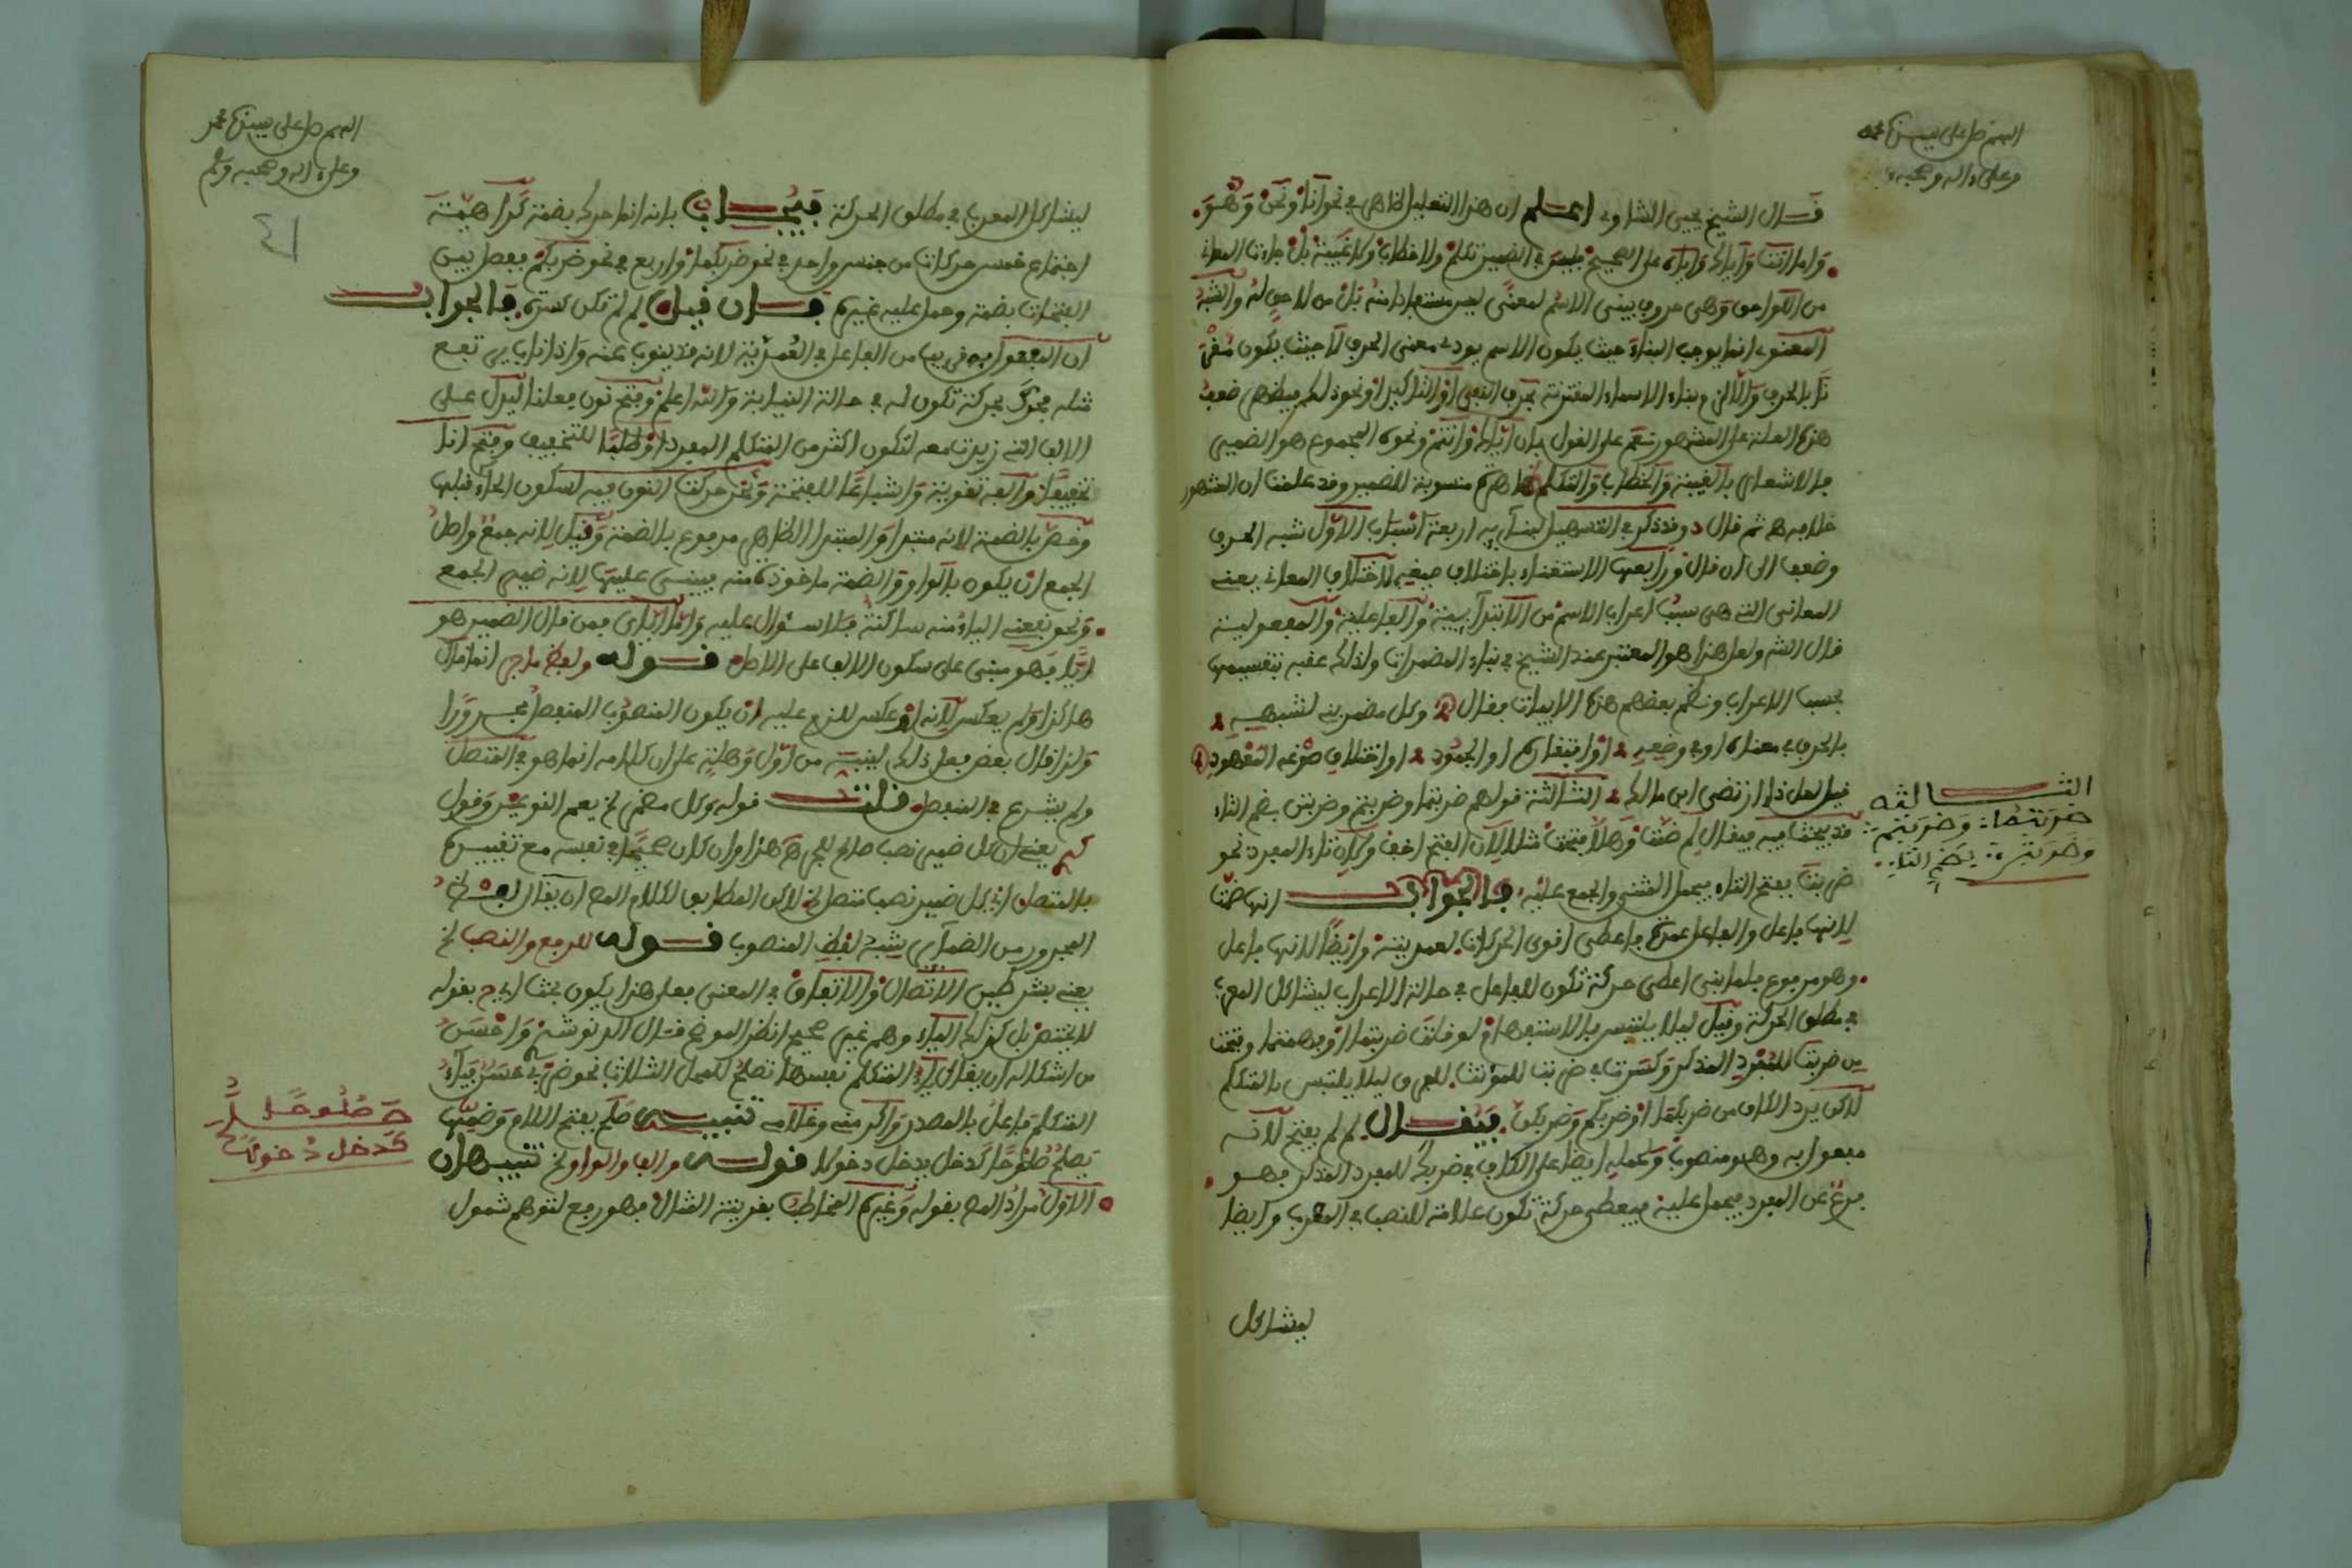 اللهم صل على سيدنا محمد
وعلى ءاله وصحبه
قال الشيخ يحيى الشاوى اعلم ان هذا التعليل ظاهر في نحو انا ونحن وهو
واما انت واياك واياه على الصحيح فليس في الضمير تكلم ولا خطاب ولا غيبة بل جاءت المعانى
من اللواحق وهى حروف يبنى الاسم لمعنى ليس مستعادا منه بل من لاحق له والشبه
المعنوى انما يوجب البناء حيث يكون الاسم يودى معنى الحرف لا حيث يكون مقتر
نا بالحرف والا لزم بناء الاسماء المقترنة بحرف النفى او التاكيد او نحو ذلك فيظهر ضعف
هذه العلة على المشهور نعم على القول بان اياك وانتم ونحوه المجموع هو الضمير
فالاشعار بالغيبة والخطاب والتكلم ظاهرة منسوبة للضمير وقد علمت ان المشهور
خلافه ثم قال وقد ذكر في التسهيل لبنائه اربعة اسباب الاول شبه الحرف
وضعا الى ان قال ورابعها الاستغناء باختلاف صيغه لاختلاف المعانى يعنى
المعانى التى هى سبب اعراب الاسم من الابتدائية والفاعلية والمفعولية
قال الش ولعل هذا هو المعتبر عند الشيخ في بناء المضمرات ولذلك عقبه بتقسيمها
بحسب الاعراب ونظم بعضهم هذه الابيات فقال وكل مضمر بنى لشبهه
بالحرف في معناه او في وضعه او افتقاره او الجمود او اختلاف صوغه المعهود
قيل لعل ذا ارتضى ابن مالك الثالثة قولهم ضربتما وضربتم وضربتن بضم التاء
قد يبحث فيه فيقال لم ضمت وهلا فتحت مثلا لان الفتح اخف ولان تاء المفرد نحو
ضربت بفتح التاء فيحمل المثنى والجمع عليه فالجواب انها ضمت
لانها فاعل والفاعل عمدة فاعطى اقوى الحركات لعمديته وايضا لانها فاعل
وهو مرفوع فلما بنى اعطى حركة تكون للفاعل في حالة الاعراب ليشاكل المعرب
في مطلق الحركة وقيل ليلا يلتبس بالاستفهام لو قلت ضربتما او فهمتما وفتحت
من ضربت للمفرد المذكر وكسرت في ضربت للمؤنث للفرق ليلا يلتبس بالتكلم
لاكن يرد الكاف من ضربكما او ضربكم وضربكن فيقال لم لم يفتح لانه
مفعول به وهو منصوب ولحمله ايضا على الكاف في ضربك للمفرد المذكر فهو
فرع عن المفرد فيحمل عليه فيعطى حركة تكون علامة للنصب في المعرب وايضا
ليشاكل
الثالثه
ضربتما وضربتم
وضربتن بضم التاء
اللهم صل على سيدنا محمد
وعلى ءاله وصحبه وسلم
ليشاكل المعرب في مطلق الحركة فيجاب بانه انما حرك بضمة كراهية
اجتماع خمس حركات من جنس واحد في نحو ضربكما واربع في نحو ضربكم ففصل بين
الفتحات بضمة وحمل عليه غيره فان قيل لم لم تكن كسرة فالجواب
ان المفعول به قريب من الفاعل في العمدية لانه قد ينوب عنه واذا ناب يرتفع
مثله فحرك بحركة تكون له في حالة النيابة والله اعلم وفتح نون فعلنا ليدل على
الالف التى زيدت معه لتكون اكثر من المتكلم المفرد او طلبا للتخفيف وفتح انا
تخفيفا والفه تقوية واشباعا للفتحة ونحن حركت النون فيه لسكون الحاء قبلها
وخص بالضمة لانه مبتدا والمبتدا الظاهر مرفوع بالضمة وقيل لانه جمع واصل
الجمع ان يكون بالواو والضمة ماخوذة منه فبنى عليها لانه ضمير الجمع
ونحو يعنى الياء منه ساكنة فلا سؤال عليه واما اياى فمن قال الضمير هو
ايا فهو مبنى على سكون الالف على الاصل قوله ولفظ ما جر انما قال
هاكذا ولم يعكس لانه لو عكس للزم عليه ان يكون المنصوب المنفصل مجرورا
ولذا قال بعض فعل ذلك لينبه من اول وهلة على ان كلامه انما هو في المتصل
ولم يشرع في المنفصل قلت قوله وكل مضمر لخ يعم النوعين وقول
كم يعنى ان كل ضمير نصب صالح للجر هذا وان كان صحيحا في نفسه مع تفسيره
بالمتصل اى كل ضمير نصب متصل لخ لاكن المطابق لكلام المص ان يقال لفظ
المجرور من الضمائر يشبه لفظ المنصوب قوله للرفع والنصب لخ
يعنى بشرطين الاتصال والاتفاق في المعنى فعلى هذا يكون بحث ابى ح بقوله
لا يختص بل كذلك الياء وهم غير صحيح انظر الموضح قال الدنوشرى واحسن
من اشكاله ان يقال ياء المتكلم نفسها تصلح للمحل الثلاث نحو ضربى عسر فياء
المتكلم فاعل بالمصدر واكرمنى وغلامى تنبيه صلح بفتح اللام وضمها
يصلح صلوحا كدخل يدخل دخولا قوله والف والواو لخ تنبيهان
الاول مراد المص بقوله وغيره المخاطب بقرينة المثال فهو رفع لتوهم شمول
صلوحا
كدخل دخولا